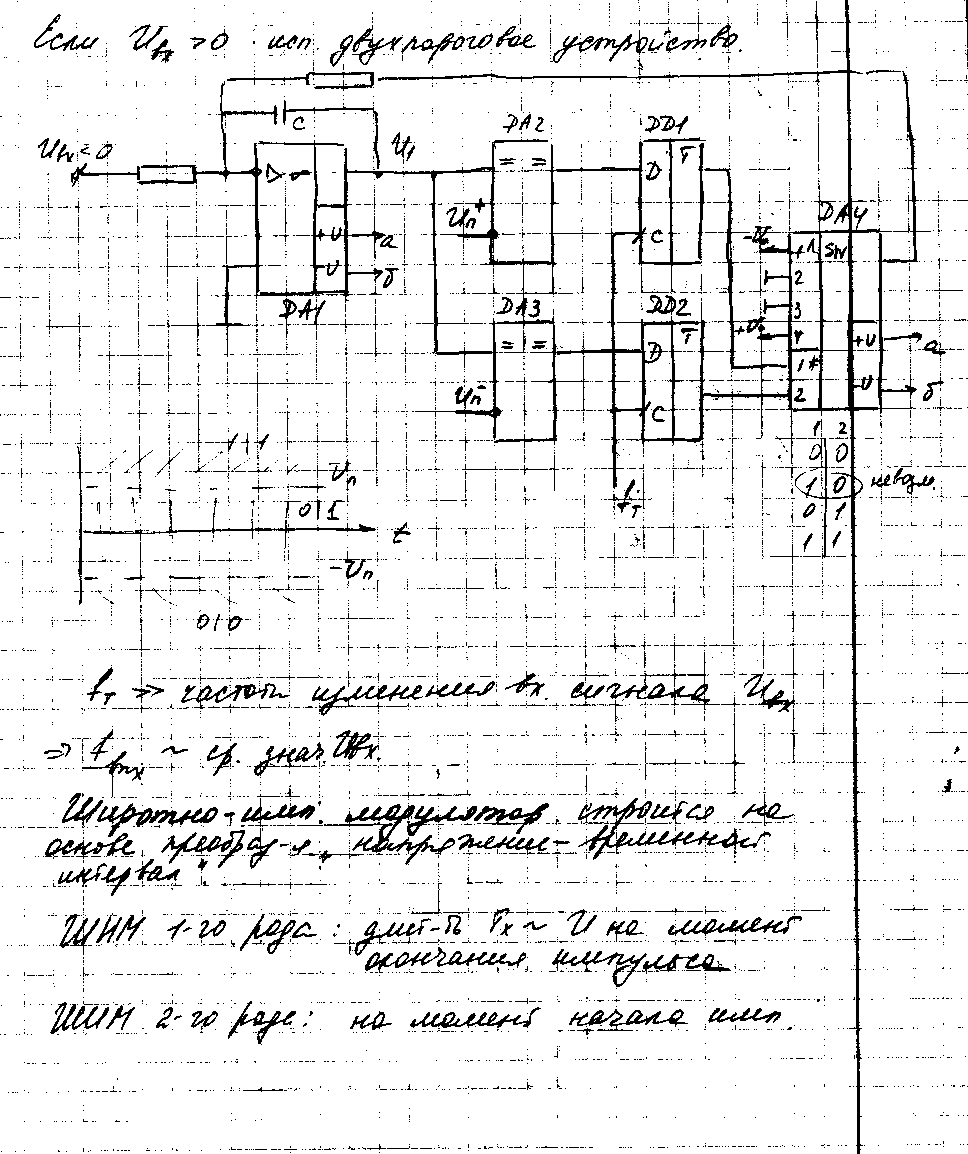 Если Uвх >0 исп двухпороговое устройство.
DA2
DD1
C
Uвх<0
U1
= =
D
T
DA4
Uп+
+U
а
C
SW
2
-U
б
DA1
DA3
DD2
3
= =
D
T
+U
а
1
Uп-
C
2
-U
б
1 2
1|1
0 0
Uп
1 0 невозм.
0|1
fт
0 1
t
1 1
-Uп
0|0
fт >> частоты изменения вх. сигнала Uвх
=> fвых ~ ср. знач. Uвх.
Широтно-имп. модулятор строится на
основе преобраз-я „напряжение-временной
интервал".
ШИМ 1-го рода: длит-ть Tx ~ U на момент
окончания импульса
ШИМ 2-го рода: на момент начала имп.